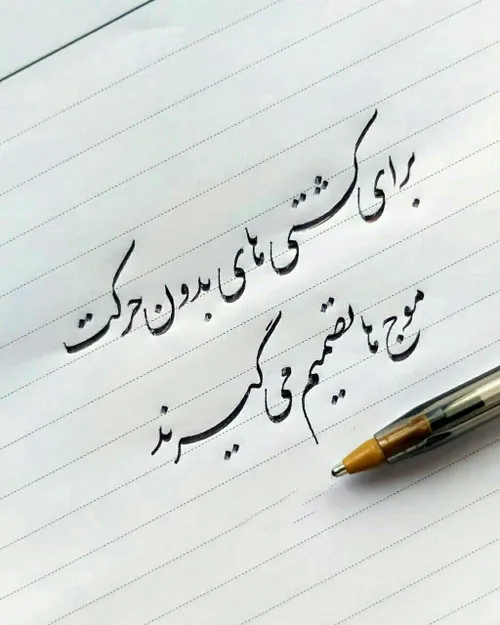 برای کشتی های بدون حرکت
موج ها تصمیم می گیرند